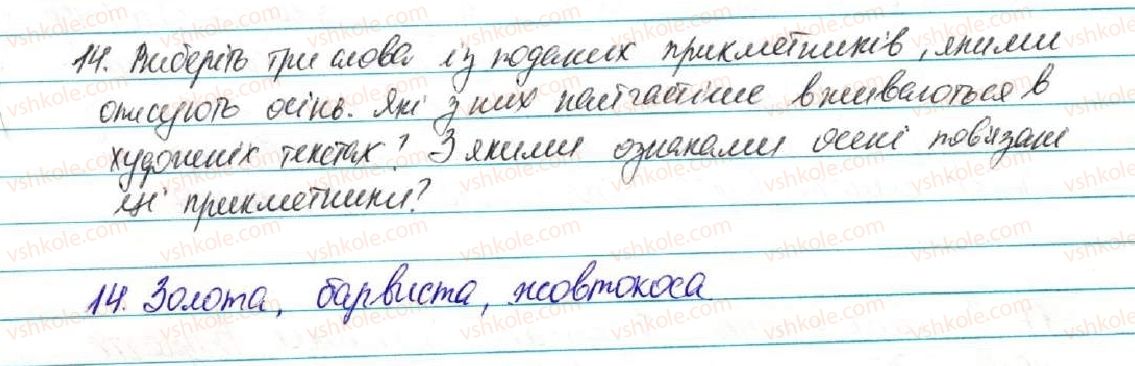 14. Виберіть три слова із поданих прикметників, якими
описують осінь. Які з них найчастіше вживаються в
художніх текстах? З якими ознаками осені пов'язані
ці прикметники?
14. Золота, барвиста, жовтокоса